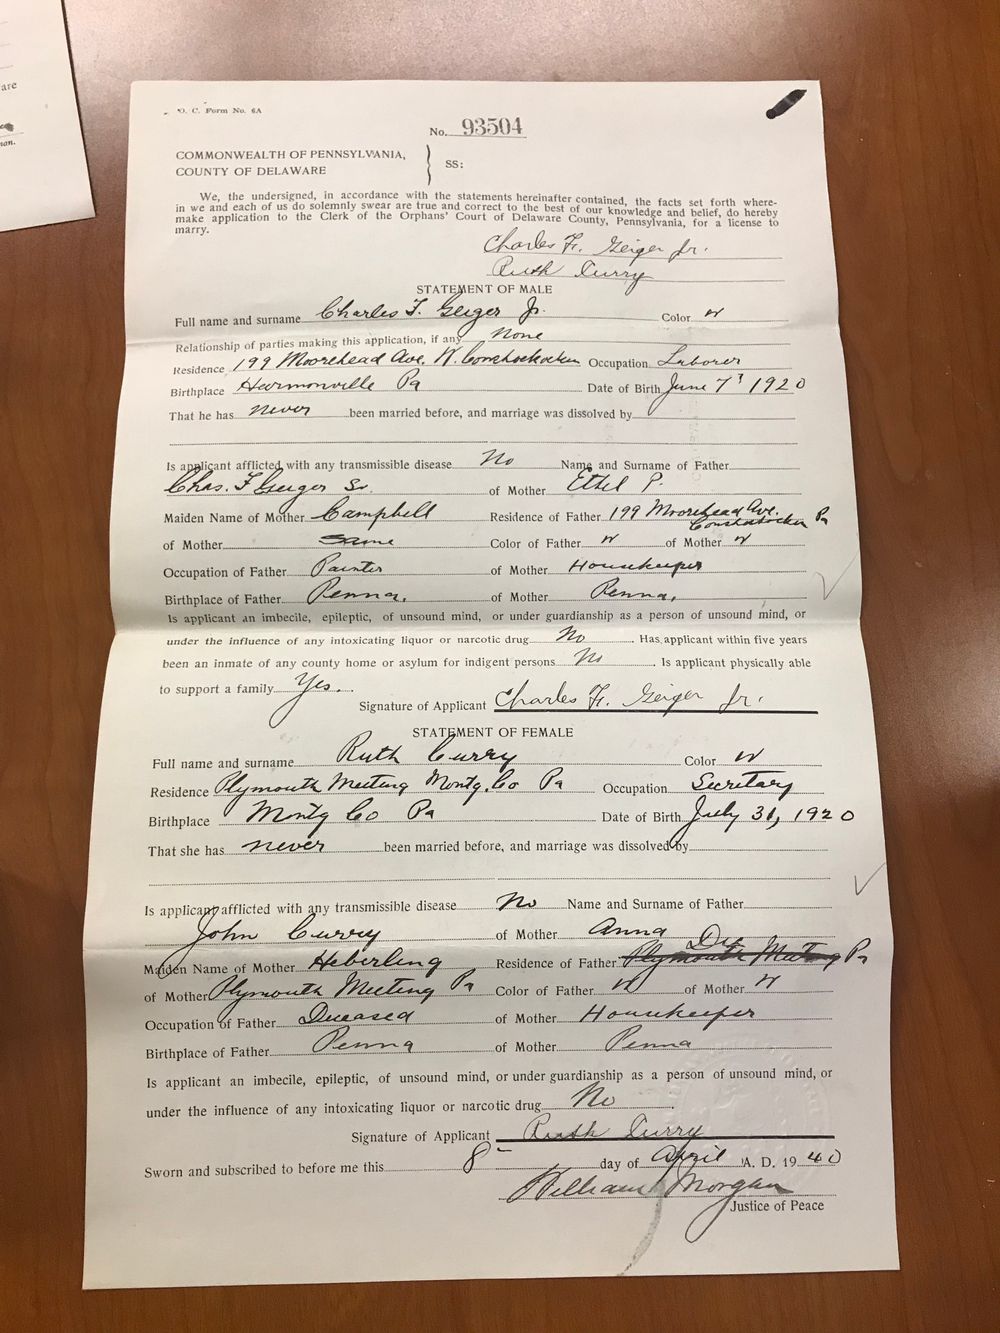 are
man.
O. C. Form No. 6A
No. 93504
COMMONWEALTH OF PENNSYLVANIA,
COUNTY OF DELAWARE
SS:
We, the undersigned, in accordance with the statements hereinafter contained, the facts set forth where-
in we and each of us do solemnly swear are true and correct to the best of our knowledge and belief, do hereby
make application to the Clerk of the Orphans' Court of Delaware County, Pennsylvania, for a license to
marry.
Charles F. Geiger Jr.
Ruth Curry
STATEMENT OF MALE
Full name and surname Charles F. Geiger Jr. Color W
Relationship of parties making this application, if any None
Residence 199 Moorehead Ave. W. Conshohocken Occupation Laborer
Birthplace Harmonville Pa Date of Birth June 7, 1920
That he has never been married before, and marriage was dissolved by
Is applicant afflicted with any transmissible disease No Name and Surname of Father
Chas. F Geiger Sr. of Mother Ethel P.
Maiden Name of Mother Campbell Residence of Father 199 Moorehead Ave. Conshohocken Pa
of Mother Same Color of Father W of Mother W
Occupation of Father Painter of Mother Housekeeper
Birthplace of Father Penna. of Mother Penna.
Is applicant an imbecile, epileptic, of unsound mind, or under guardianship as a person of unsound mind, or
under the influence of any intoxicating liquor or narcotic drug No Has applicant within five years
been an inmate of any county home or asylum for indigent persons No Is applicant physically able
to support a family Yes.
Signature of Applicant Charles F. Geiger Jr.
STATEMENT OF FEMALE
Full name and surname Ruth Curry Color W
Residence Plymouth Meeting Montg. Co Pa Occupation Secretary
Birthplace Montg Co Pa Date of Birth July 31, 1920
That she has never been married before, and marriage was dissolved by
Is applicant afflicted with any transmissible disease No Name and Surname of Father
John Curry of Mother Anna
Maiden Name of Mother Heberling Residence of Father Plymouth Meeting Pa
of Mother Plymouth Meeting Pa Color of Father W of Mother W
Occupation of Father Deceased of Mother Housekeeper
Birthplace of Father Penna of Mother Penna
Is applicant an imbecile, epileptic, of unsound mind, or under guardianship as a person of unsound mind, or
under the influence of any intoxicating liquor or narcotic drug No
Signature of Applicant Ruth Curry
Sworn and subscribed to before me this 8 day of April A. D. 1940
William Morgan
Justice of Peace